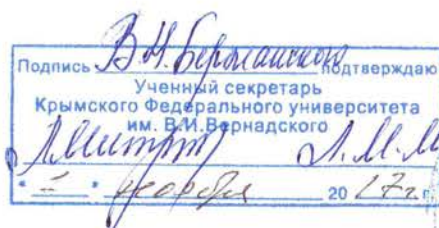 Подпись В.Н. Бержанского подтверждаю
Ученный секретарь
Крымского Федерального университета
им. В.И.Вернадского
Л.М.М
" " ноября 2017 г.